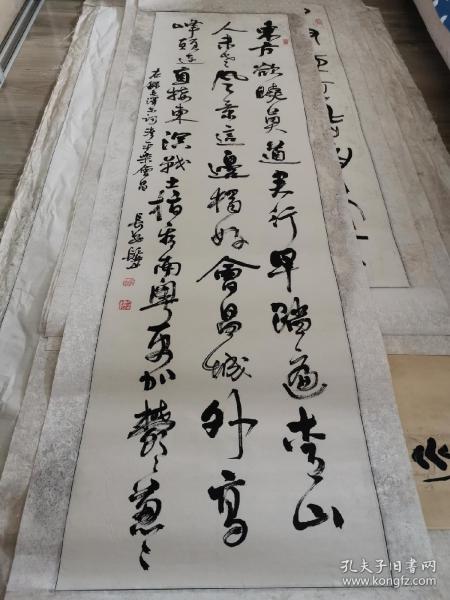 東方欲曉莫道君行早踏遍青山
人未老風景這邊獨好會昌城外高
峰顛連直接東溟战士指看南粵更加鬱〻葱〻
右錄毛澤东词清平樂會昌 長安
孔夫子旧书网
www.kongfz.com